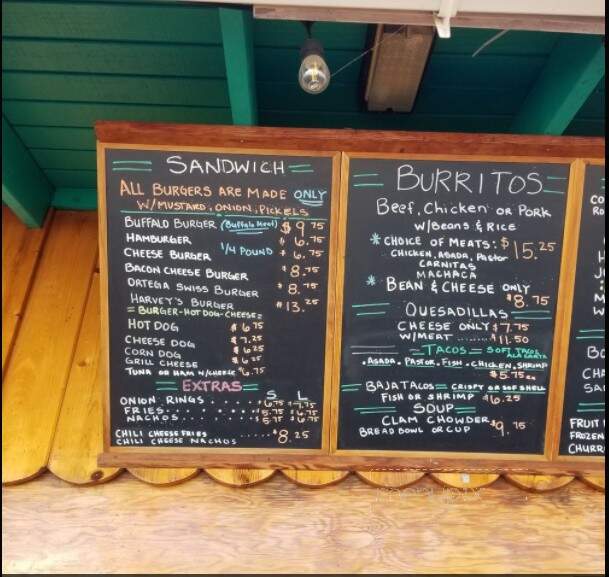 SANDWICH
ALL BURGERS ARE MADE ONLY
W/MUSTARD, ONION, PICKELS
BUFFALO BURGER (Buffalo Meat) $9.75
HAMBURGER 6.75
CHEESE BURGER 1/4 POUND 6.75
BACON CHEESE BURGER 8.75
ORTEGA SWISS BURGER 8.75
HARVEY'S BURGER 13.25
BURGER-HOT DOG-CHEESE
HOT DOG $6.75
CHEESE DOG $7.25
CORN DOG $6.25
GRILL CHEESE
TUNA OR HAM W/CHEESE $6.75
EXTRAS
S L
ONION RINGS 6.75 7.75
FRIES 5.75 6.75
NACHOS 5.75 6.75
CHILI CHEESE FRIES
CHILI CHEESE NACHOS $8.25
BURRITOS
Beef, Chicken or Pork
W/BEANS & RICE
*CHOICE OF MEATS: $15.25
CHICKEN, ASADA, Pastor
CARNITAS
MACHACA
*BEAN & CHEESE ONLY
$8.75
QUESADILLAS
CHEESE ONLY $7.75
W/MEAT $11.50
TACOS SOFT TACOS
ALA CARTA
ASADA, PASTOR, FISH, CHICKEN, SHRIMP
$5.75 ea
BAJA TACOS CRISPY OR SOF SHELL
FISH OR SHRIMP $6.25
SOUP
CLAM CHOWDER $9.75
BREAD BOWL OR CUP
CO
BO
CHA
SA
FRUIT
FROZEN
CHURR